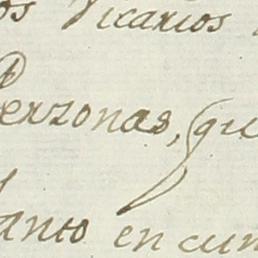 os Vicarios
Perzonas, qu
anto en cum